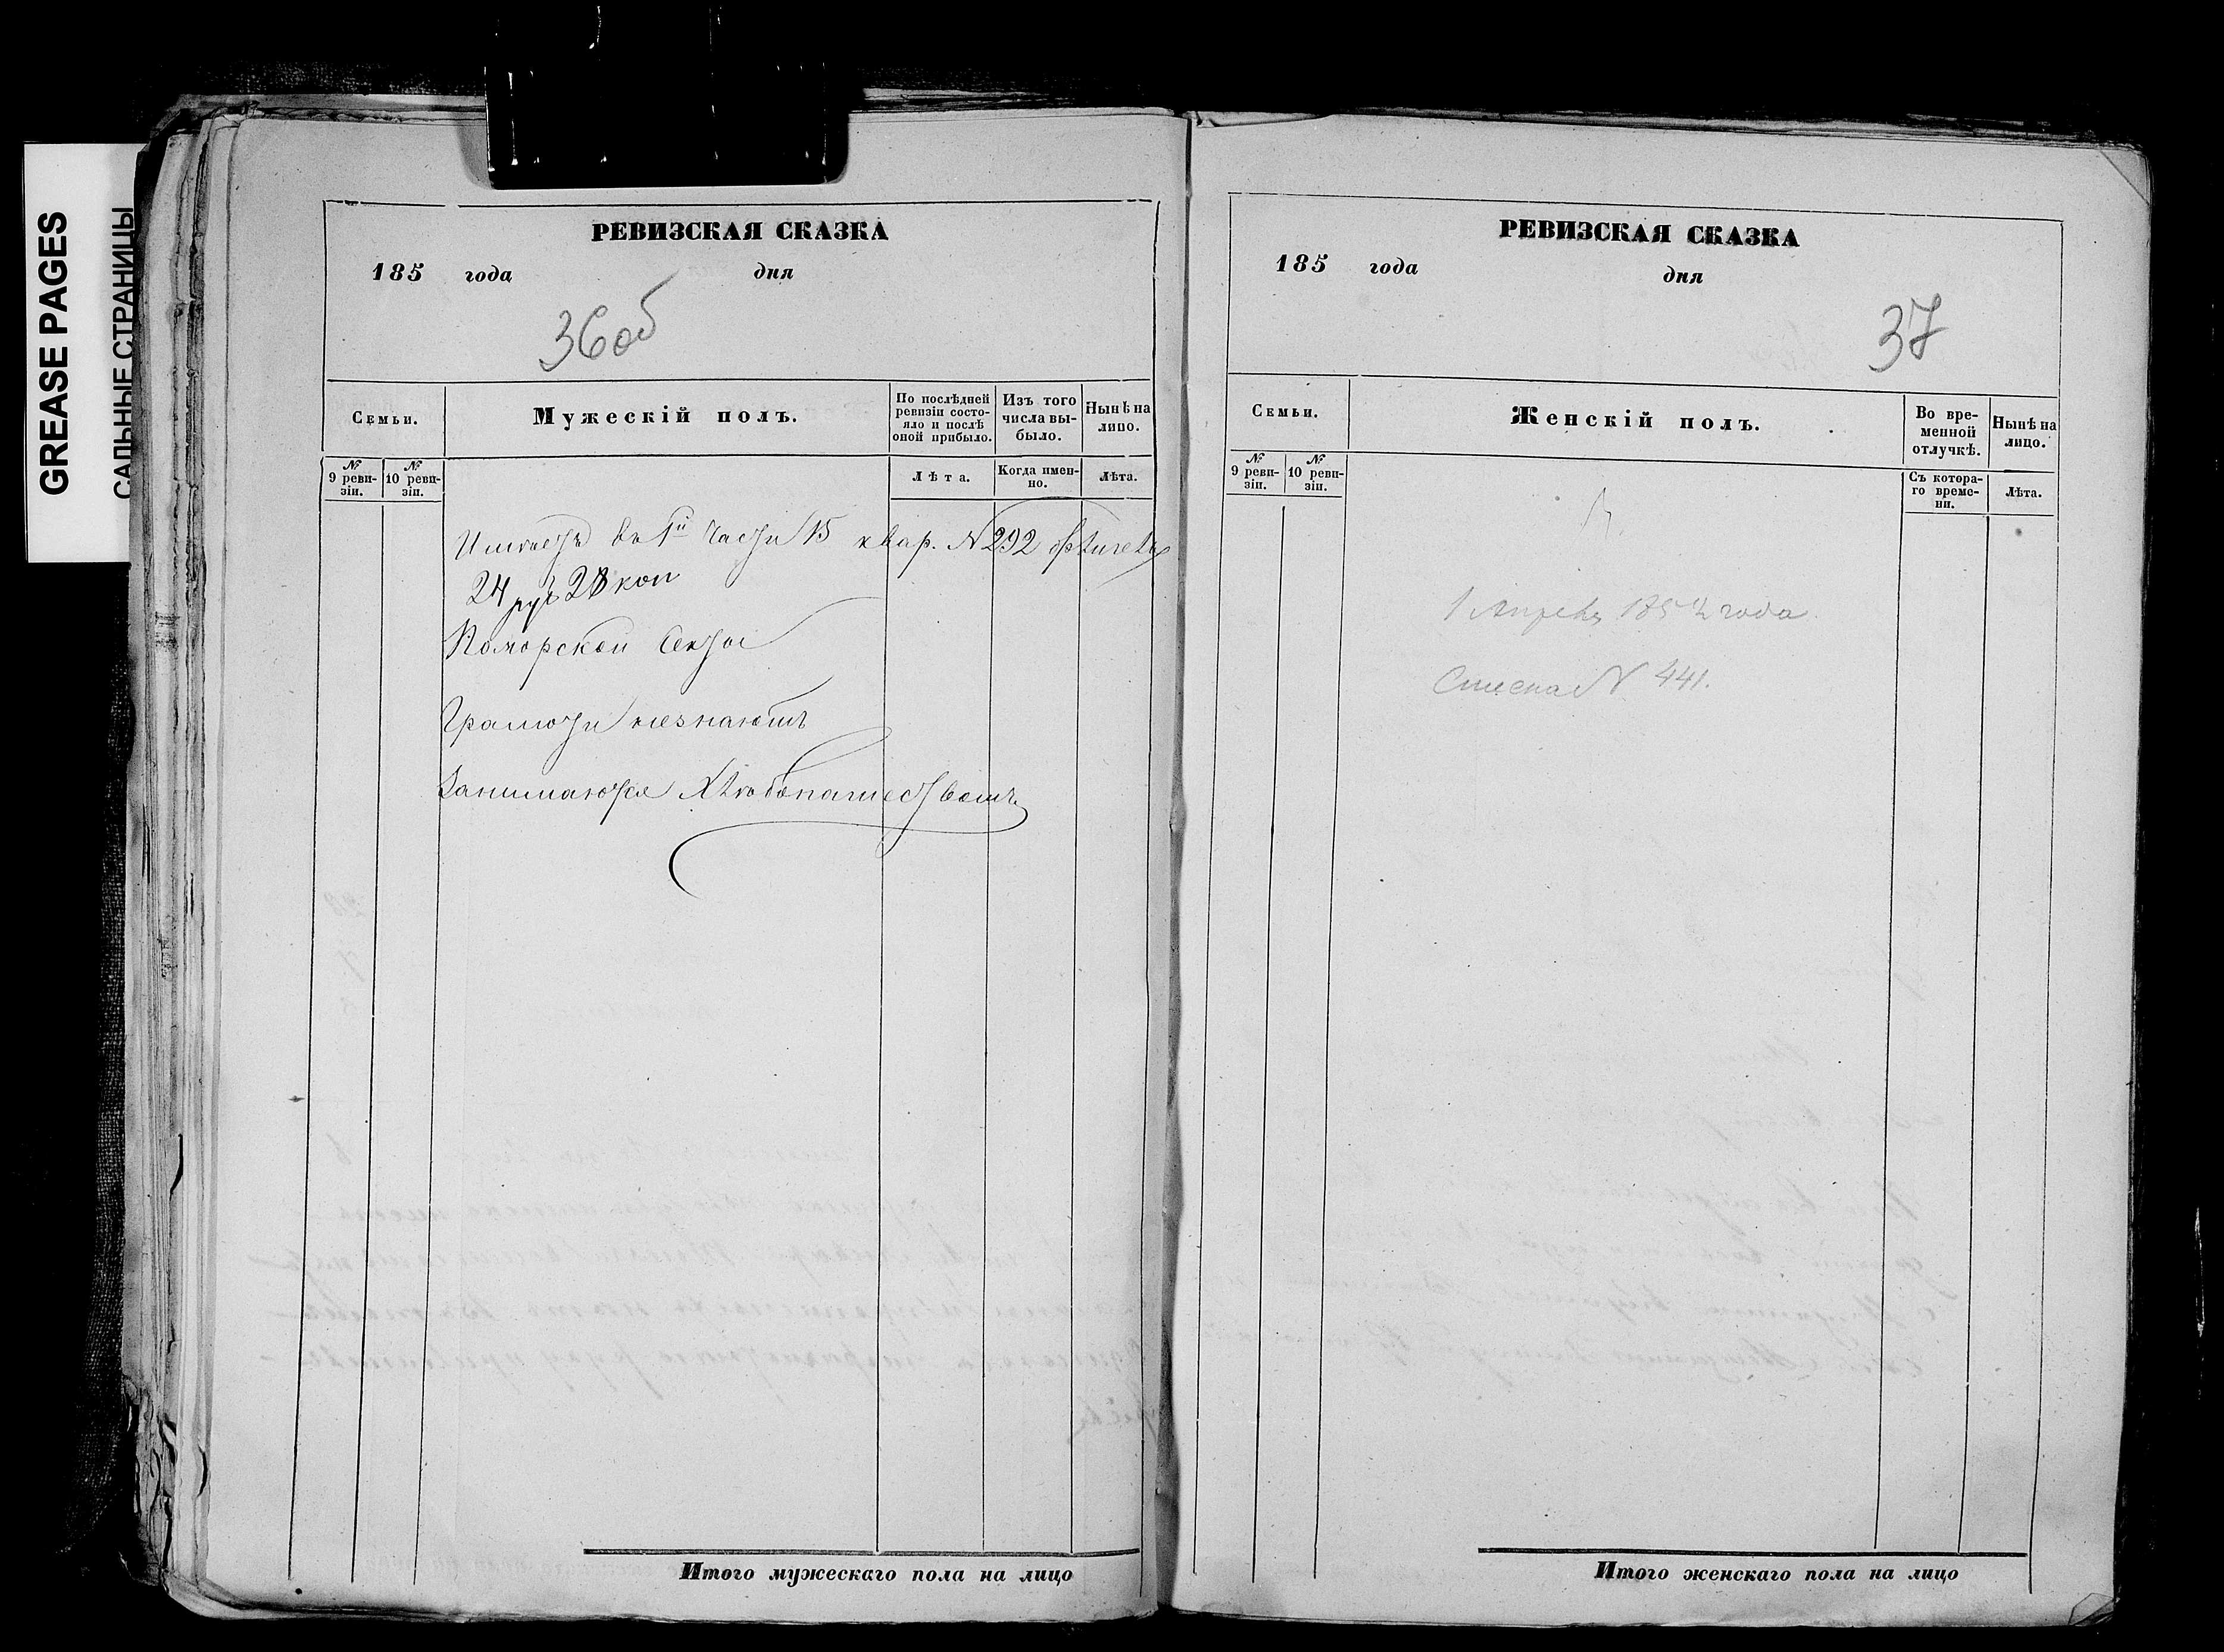 GREASE PAGES
САЛЬНЫЕ СТРАНИЦЫ
РЕВИЗСКАЯ СКАЗКА
185 года дня
36об
Семьи.
Мужескій полъ.
По послѣдней ревизіи состо-
яло и послѣ
оной прибыло.
Изъ того
числа вы-
было.
Нынѣ на
лицо.
№
9 реви-
зіи.
№
10 реви-
зіи.
Лѣта.
Когда имен-
но.
Лѣта.
въ 1й части 15 квар. N 292
24 руб 28 коп
Поморской Секты
Грамоти незнаютъ
Занимаются Хлѣбопашествомъ
Итого мужескаго пола на лицо
РЕВИЗСКАЯ СКАЗКА
185 года дня
37
Семьи.
Женскій полъ.
Во вре-
менной
отлучкѣ.
Нынѣ на
лицо.
№
9 реви-
зіи.
№
10 реви-
зіи.
Съ котора-
го време-
ни.
Лѣта.
1 Апрѣля 1852 года
N 441.
Итого женскаго пола на лицо